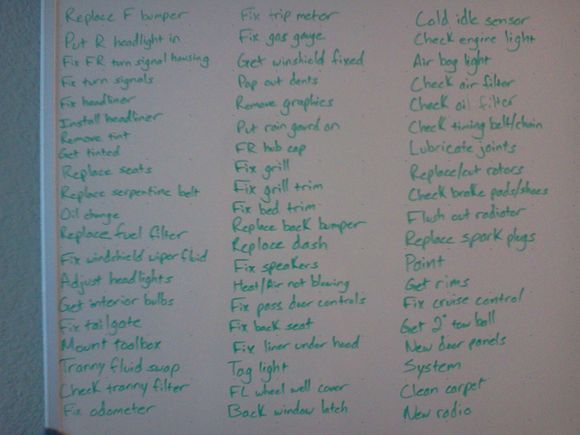 Replace F bumper
Put R headlight in
Fix FR turn signal housing
Fix turn signals
Fix headliner
Install headliner
Remove tint
Get tinted
Replace seats
Replace serpentine belt
Oil change
Replace fuel filter
Fix windshield wiper fluid
Adjust headlights
Get interior bulbs
Fix tailgate
Mount toolbox
Tranny fluid swap
Check tranny filter
Fix odometer
Fix trip meter
Fix gas gauge
Get winshield fixed
Pop out dents
Remove graphics
Put rain gaurd on
FR hub cap
Fix grill
Fix grill trim
Fix bed trim
Replace back bumper
Replace dash
Fix speakers
Heat/Air not blowing
Fix pass door controls
Fix back seat
Fix liner under hood
Tag light
FL wheel well cover
Back window latch
Cold idle sensor
Check engine light
Air bag light
Check air filter
Check oil filter
Check timing belt/chain
Lubricate joints
Replace/cut rotors
Check brake pads/shoes
Flush out radiator
Replace spark plugs
Paint
Get rims
Fix cruise control
Get 2" tow ball
New door panels
System
Clean carpet
New radio